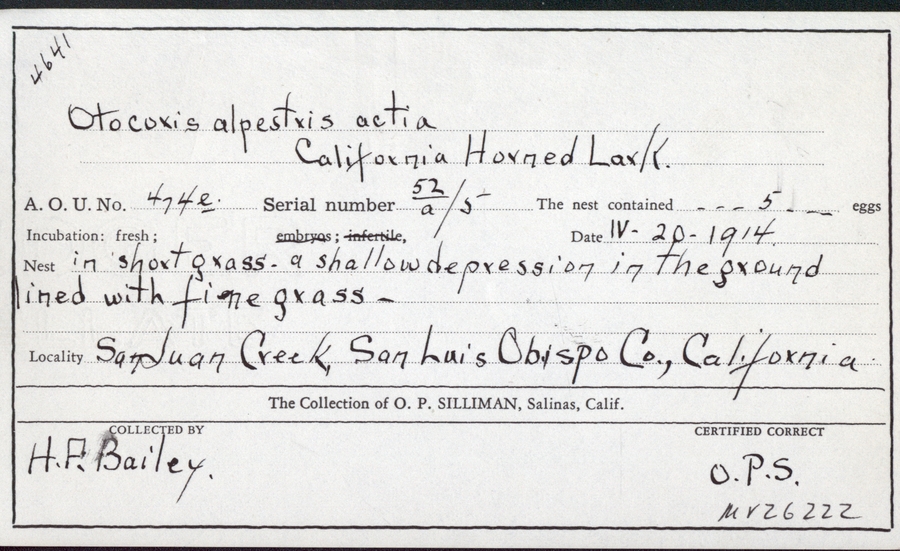 4641
Otocoris alpestris actia
California Horned Lark.
A. O. U. No. 474e. Serial number 52/a/5 The nest contained - - - 5 - - eggs
Incubation: fresh; embryos; infertile, Date IV- 20-1914.
Nest in short grass - a shallow depression in the ground
lined with fine grass -
Locality San Juan Creek, San Luis Obispo Co., California.
The Collection of O. P. SILLIMAN, Salinas, Calif.
COLLECTED BY CERTIFIED CORRECT
H.F. Bailey. O.P.S.
MVZ6222